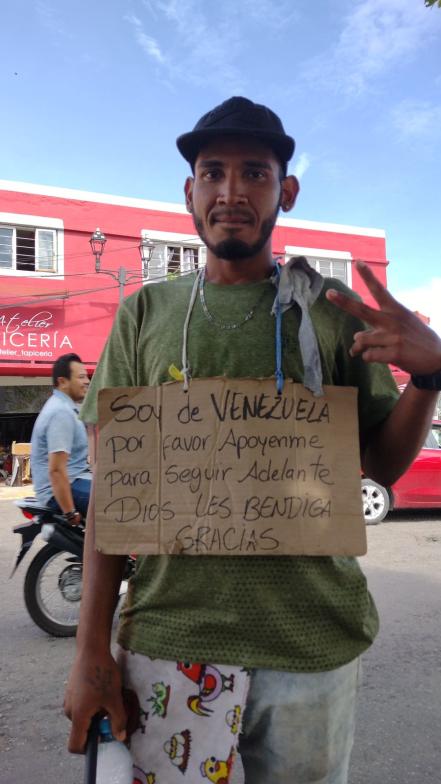 Atelier
ICERÍA
telier_tapiceria
Soy de VENEZUELA
por favor Apoyenme
para Seguir Adelante
DIOS LES BENDIGA
GRACIAS